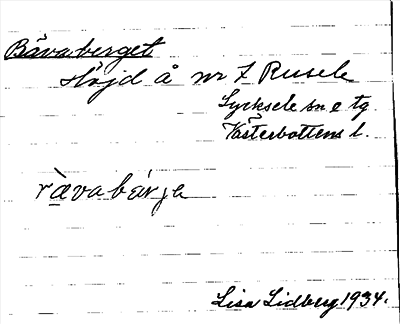 Bävaberget
Höjd å nr 7 Rusele
Lycksele sn o tg.
Västerbottens l.
rävabärje
Lisa Lidberg 1934.